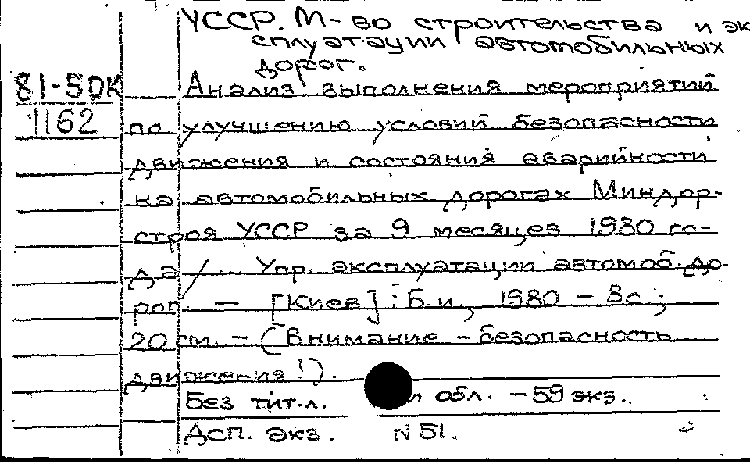 УССР. М-во строительства и эк
сплуатации автомобильных
дорог.
81-5ДК Анализ выполнения мероприятий
1162 по улучшению условий безопасности
движения и состояния аварийности
на автомобильных дорогах Миндор-
строя УССР за 9 месяцев 1980 го-
да / Упр. эксплуатации автомоб. до-
рог. — [Киев] : Б.и., 1980 — 8с.;
20 см. — (Внимание – безопасность
движения!).
Без тит.л. обл. — 59 экз.
Дсп. экз. N 51.